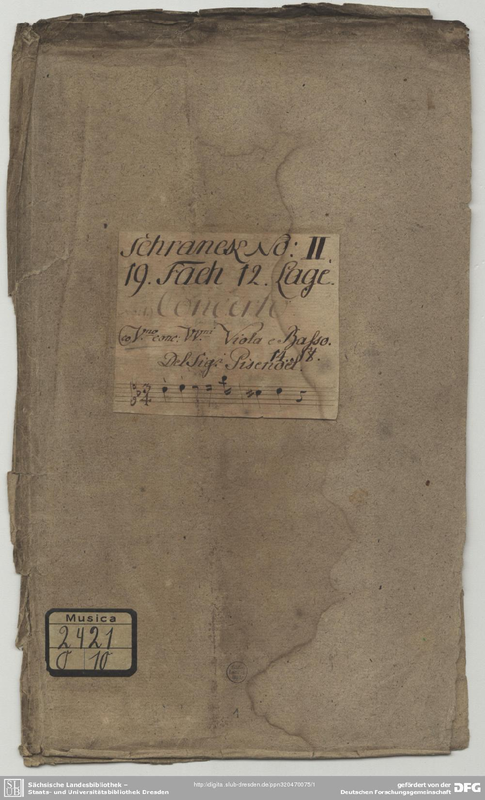 Schranck No: II.
19. Fach 12. Lage.
Concerto
co V.no conc. VV.ni Viola e Basso.
14. 18.
Del Sigr Pisendel.
Musica
2421
O 10
1
Sächsische Landesbibliothek -
Staats- und Universitätsbibliothek Dresden
http://digital.slub-dresden.de/ppn320470075/1
gefördert von der
Deutschen Forschungsgemeinschaft
DFG